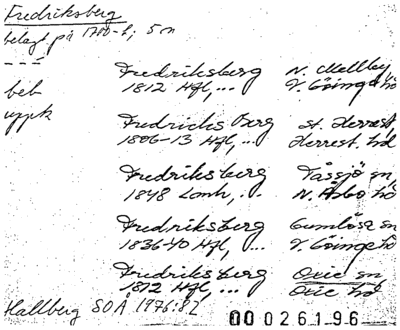 Fredriksberg
belagt på 1700-t; 5 m
---
beb
uppk
Fredriksberg N. Mellby
1812 Hfl,... V. Göinge hd
Fredrichsberg St. Herrest.
1806-13 Hfl,... Herrest. hd
Fredriksberg Tåssjö sn,
1848 Lanh,.. N. Åsbo hd
Fredriksberg Gumlösa sn
1836-40 Hfl,... V. Göinge hd
Fredriksberg Oxie sn
1812 Hfl,... Oxie hd
Hallberg SOÅ 1976:82
00026196